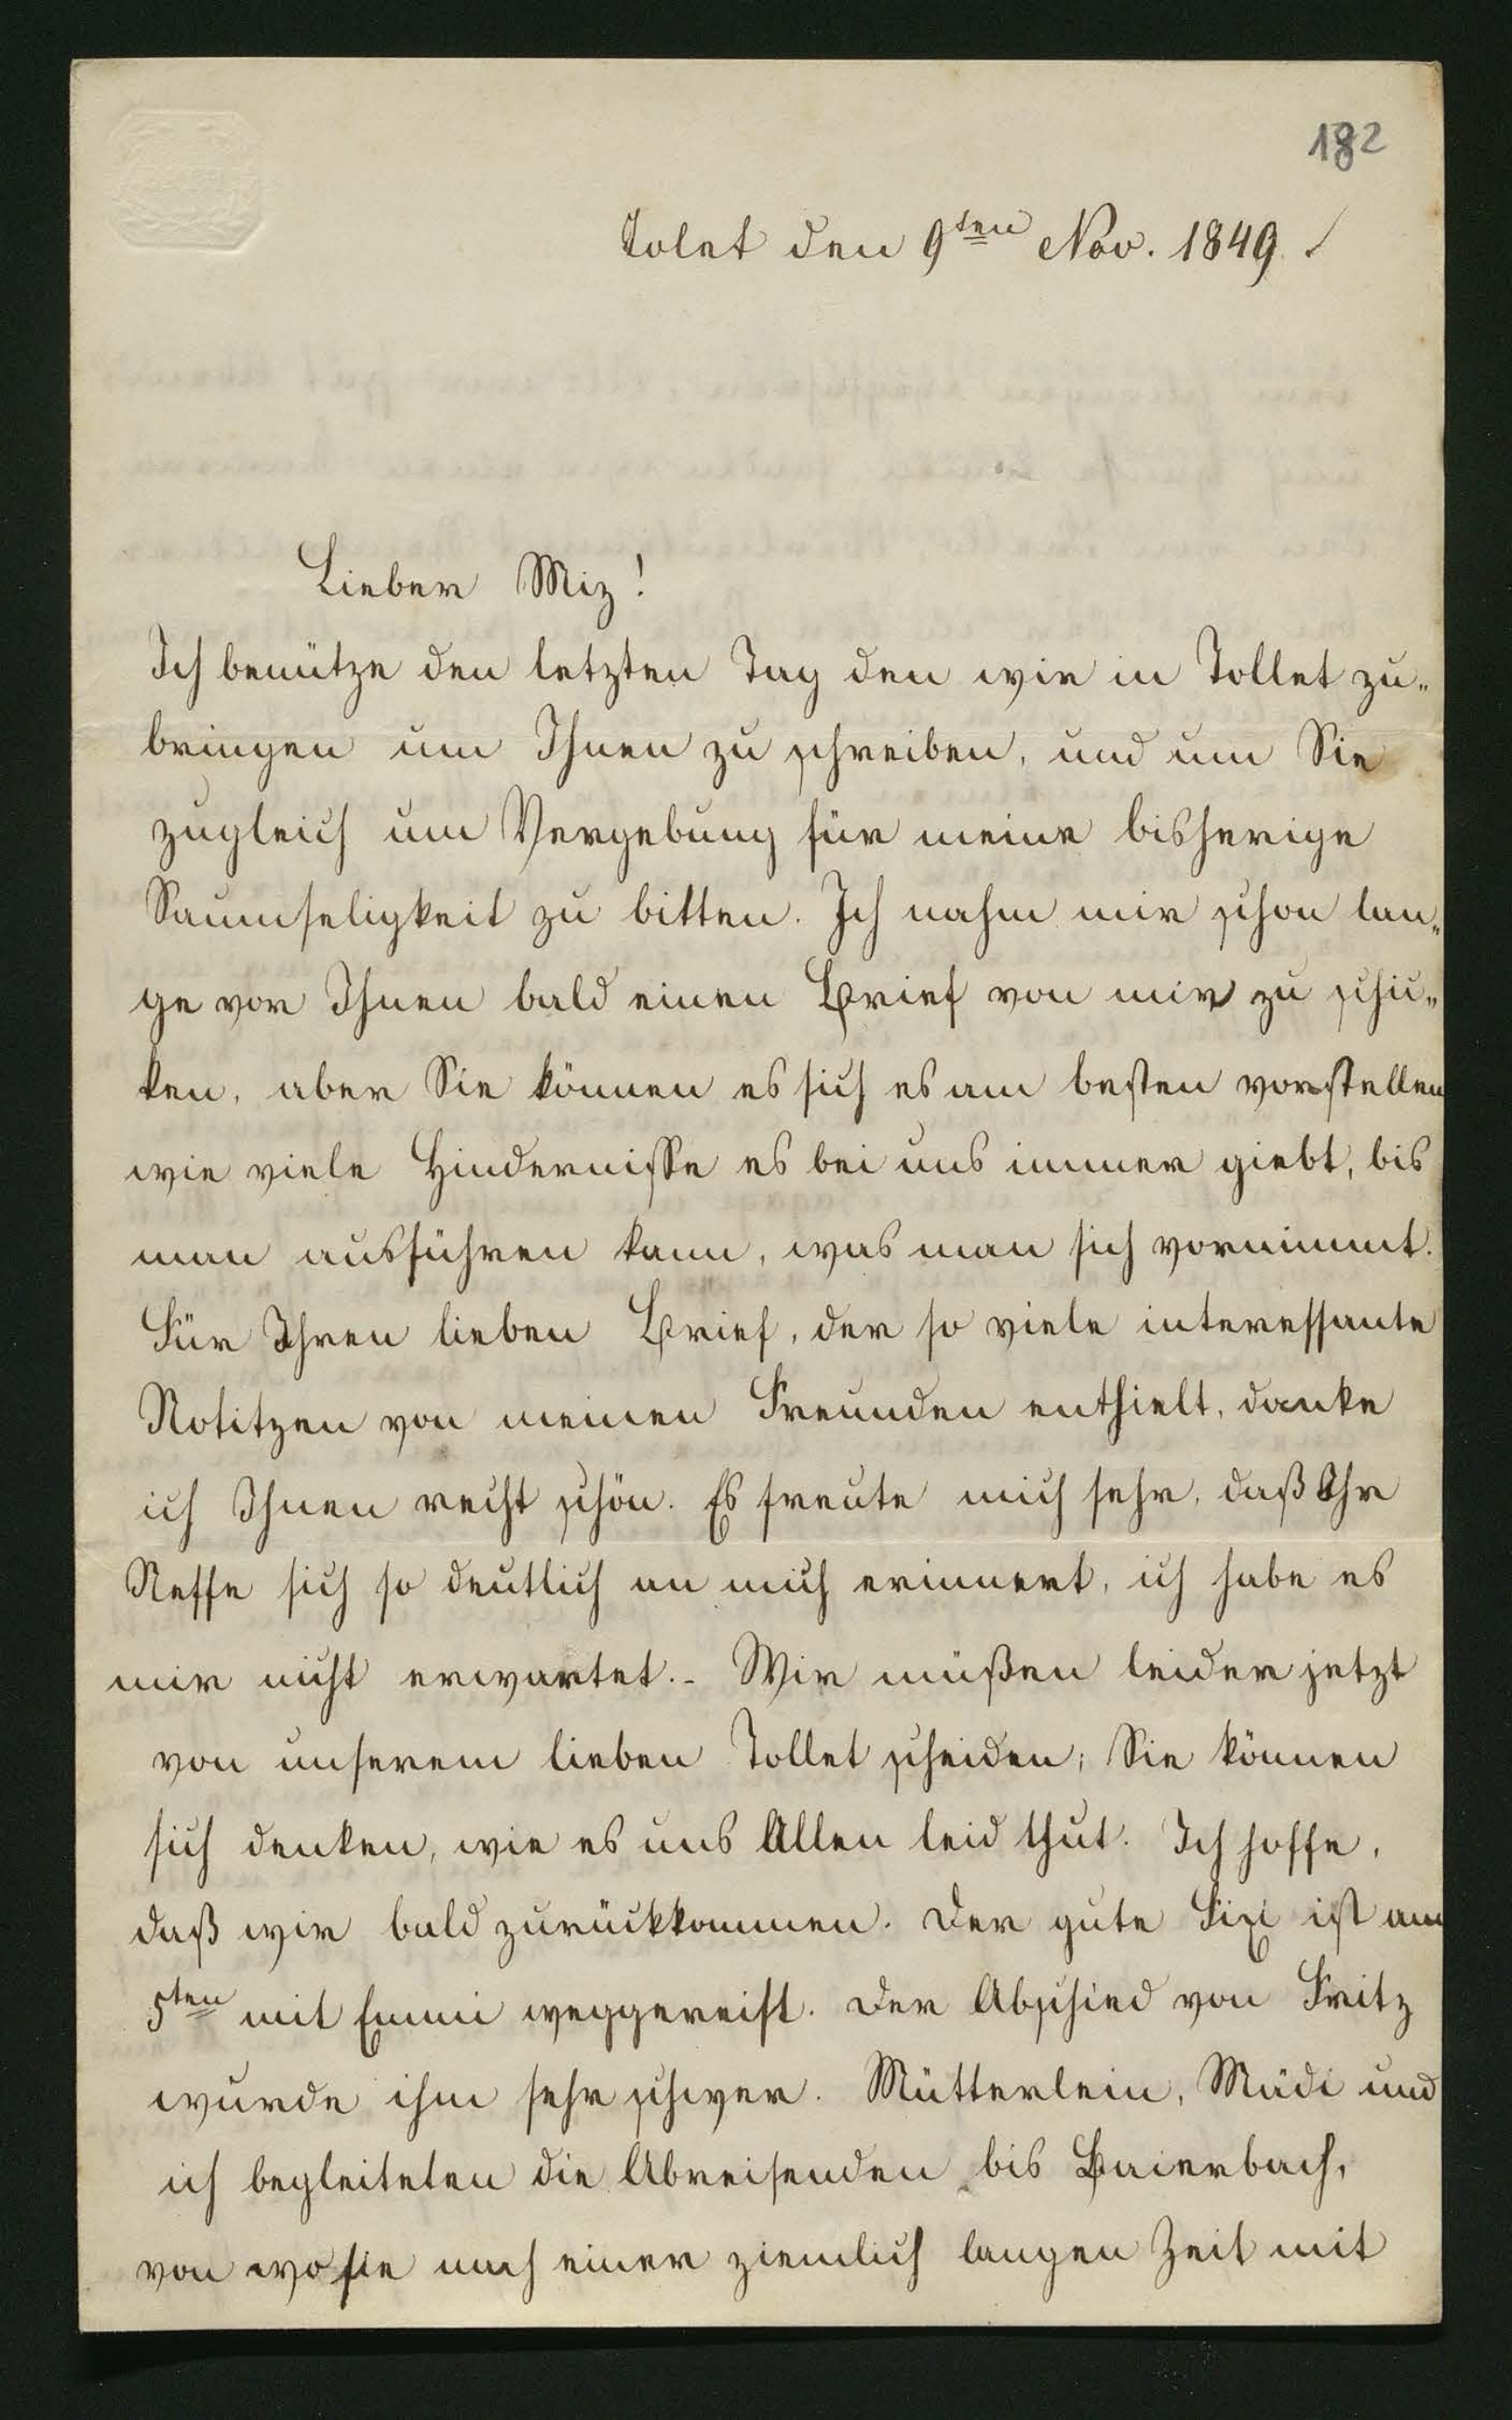 182
Tolet den 9ten Nov. 1849
Lieber Miz!
Ich benütze den letzten Tag den wir in Tollet zu„
bringen um Ihnen zu schreiben, und um Sie
zugleich um Vergebung für meine bisherige
Saumseligkeit zu bitten. Ich nahm mir schon lan„
ge vor Ihnen bald einen Brief von mir zu schi„
ken, aber Sie können es sich es am besten vorstellen
wie viele Hindernisse es bei uns immer giebt, bis
man ausführen kann, was man sich vornimmt.
Für Ihren lieben Brief, der so viele interessante
Notitzen von meinen Freunden enthielt, danke
ich Ihnen recht schön. Es freute mich sehr, daß Ihr
Neffe sich so deutlich an mich erinnert, ich habe es
mir nicht erwartet. – Wir müßen leider jetzt
von unserem lieben Tollet scheiden; Sie können
sich denken, wie es uns Allen leid thut. Ich hoffe,
daß wir bald zurückkommen. Der gute Fixi ist am
5ten mit Emmi weggereist. Der Abschied von Fritz
wurde ihm sehr schwer. Mütterlein, Mädi und
ich begleiteten die Abreisenden bis Baierbach,
von wo sie nach einer ziemlich langen Zeit mit